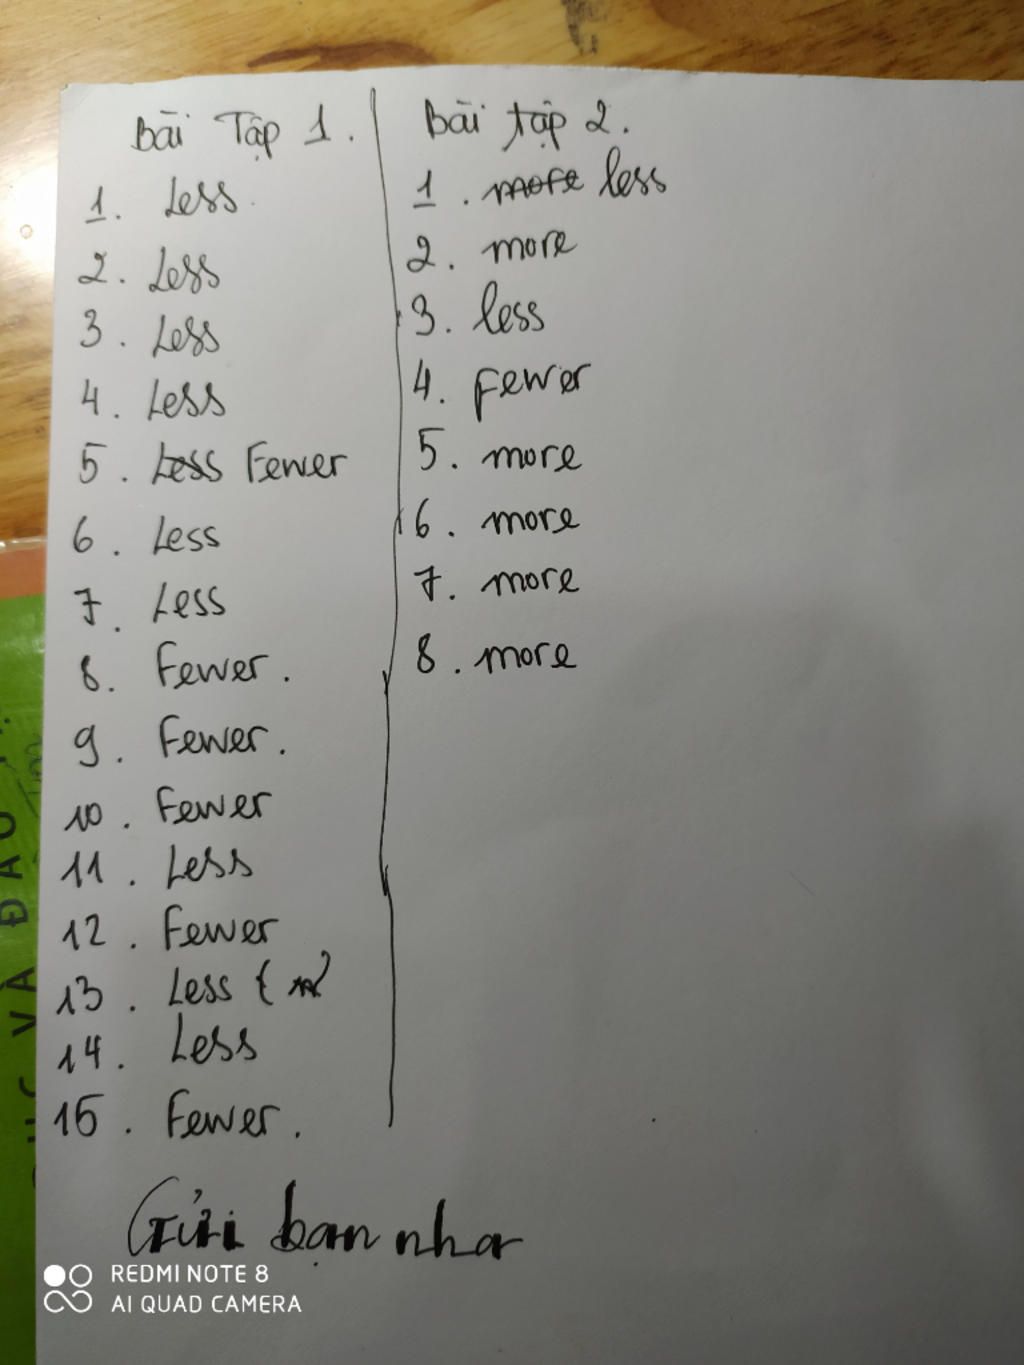 Bài Tập 1.
1. Less.
2. Less
3. Less
4. Less
5. Less Fewer
6. Less
7. Less
8. Fewer.
9. Fewer.
10. Fewer
11. Less
12. Fewer
13. Less
14. Less
15. Fewer.
Bài tập 2.
1. more less
2. more
3. less
4. Fewer
5. more
6. more
7. more
8. more
Gửi bạn nha
REDMI NOTE 8
AI QUAD CAMERA
VÀ ĐÀO